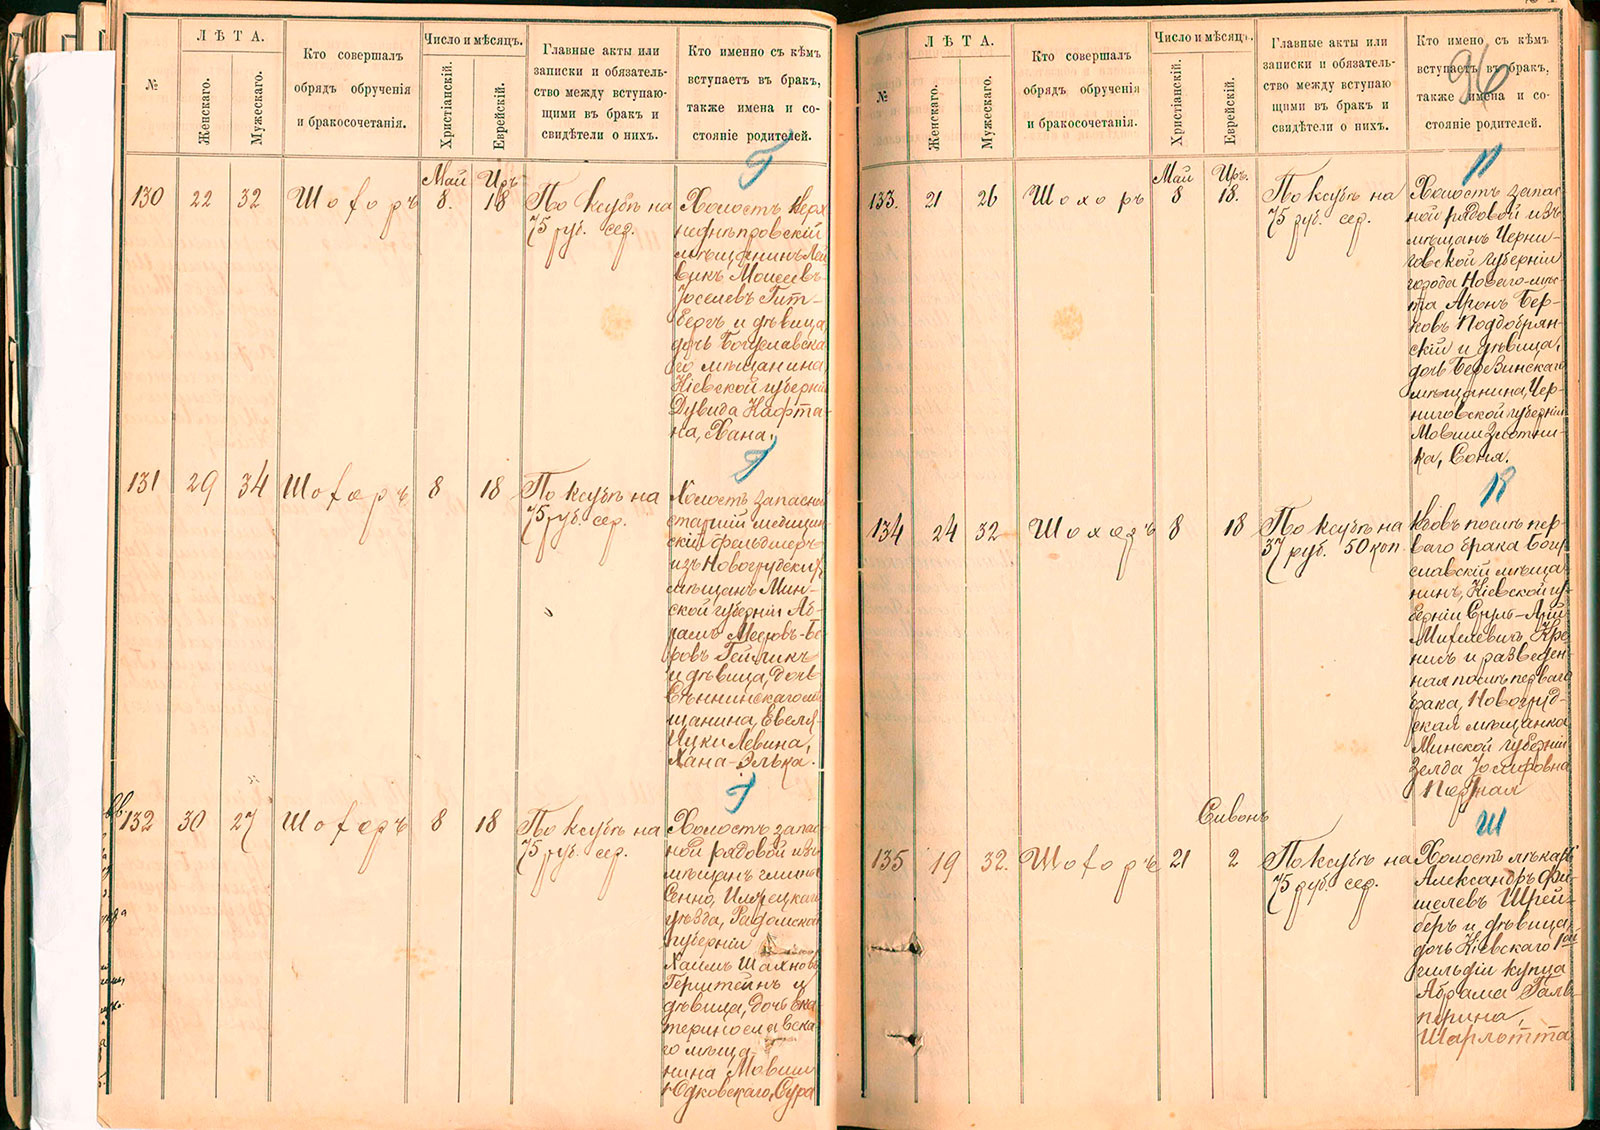 №
ЛѢТА.
Женскаго.
Мужескаго.
Кто совершалъ
обрядъ обрученія
и бракосочетанія.
Число и мѣсяцъ.
Христіанскій.
Еврейскій.
Главные акты или
записки и обязатель-
ство между вступаю-
щими въ бракъ и
свидѣтели о нихъ.
Кто именно съ кѣмъ
вступаетъ въ бракъ,
также имена и со-
стояніе родителей.
Г
Май Иръ
130 22 32 Шохоръ 8. 18 По ксубѣ на
75 руб. сер.
Холостъ Верх
неднѣпровскій
мѣщанинъ Лей
викъ Моисеевъ-
Іоселевъ Гит-
бергъ и дѣвица,
дочь Богуславска
го мѣщанина,
Кіевской губерніи
Дувида Кафта-
на, Хана.
Г
131 29 34 Шохоръ 8 18 По ксубѣ на
75 руб. сер.
Холостъ запасной
старшій медицин
скій фельдшеръ
изъ Новогрудскихъ
мѣщанъ Мин-
ской губерніи Аб-
рамъ Мееровъ-Бе
ровъ
и дѣвица, дочь
Сѣннинскаго мѣ
щанина, Евеля-
Ицки Левина,
Хана-Элька.
Г
132 30 27 Шохоръ 8 18 По ксубѣ на
75 руб. сер.
Холостъ запас
ной рядовой изъ
мѣщанъ гмины
Сенно, Илжецкаго
уѣзда, Радомской
губерніи
Хаимъ Шахновъ
Герштейнъ и
дѣвица, дочь Ека
теринославска
го мѣща-
нина Мовши
Юдковскаго, Сура
96
№
ЛѢТА.
Женскаго.
Мужескаго.
Кто совершалъ
обрядъ обрученія
и бракосочетанія.
Число и мѣсяцъ.
Христіанскій.
Еврейскій.
Главные акты или
записки и обязатель-
ство между вступаю
щими въ бракъ и
свидѣтели о нихъ.
Кто имено съ кѣмъ
вступаетъ въ бракъ,
также имена и со-
стояніе родителей.
П
Май Иръ.
133. 21 26 Шохоръ 8 18. По ксубѣ на
75 руб. сер.
Холостъ запас
ной рядовой изъ
мѣщанъ Черни-
говской губерніи
города Новаго-мѣс
та Аронъ Бер-
ковъ Поддобрян-
скій и дѣвица,
дочь Березинскаго
мѣщанина, Чер-
ниговской губерніи
Мовши Злотни-
ка, Соня.
К
134 24 32 Шохоръ 8 18 По ксубѣ на
37 руб. 50 коп.
Вдовъ послѣ пер
ваго брака Богу
славскій мѣща
нинъ, Кіевской гу-
берніи Сруль-Арій
Михелевичъ Кре
нисъ и разведен-
ная послѣ перваго
брака, Новогруд-
ская мѣщанка
Минской губерніи
Зелда Іосифовна
Перчал
Ш
Сивонъ
135 19 32. Шохоръ 21 2 По ксубѣ на
75 руб. сер.
Холостъ лѣкарь
Александръ Фи-
шелевъ Шрей-
беръ и дѣвица,
дочь Кіевскаго 1ой
гильдіи купца
Абрама Галь-
перина,
Шарлотта